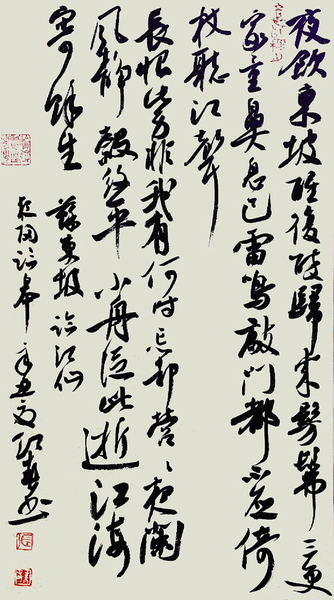 夜飲東坡醒復醉歸來髣髴三更
家童鼻息已雷鳴敲門都不應倚
杖聽江聲
長恨此身非我有何時忘卻營〻夜闌
風靜縠紋平小舟從此逝江海
寄餘生
蘇東坡臨江仙
夜歸臨皋辛丑夏